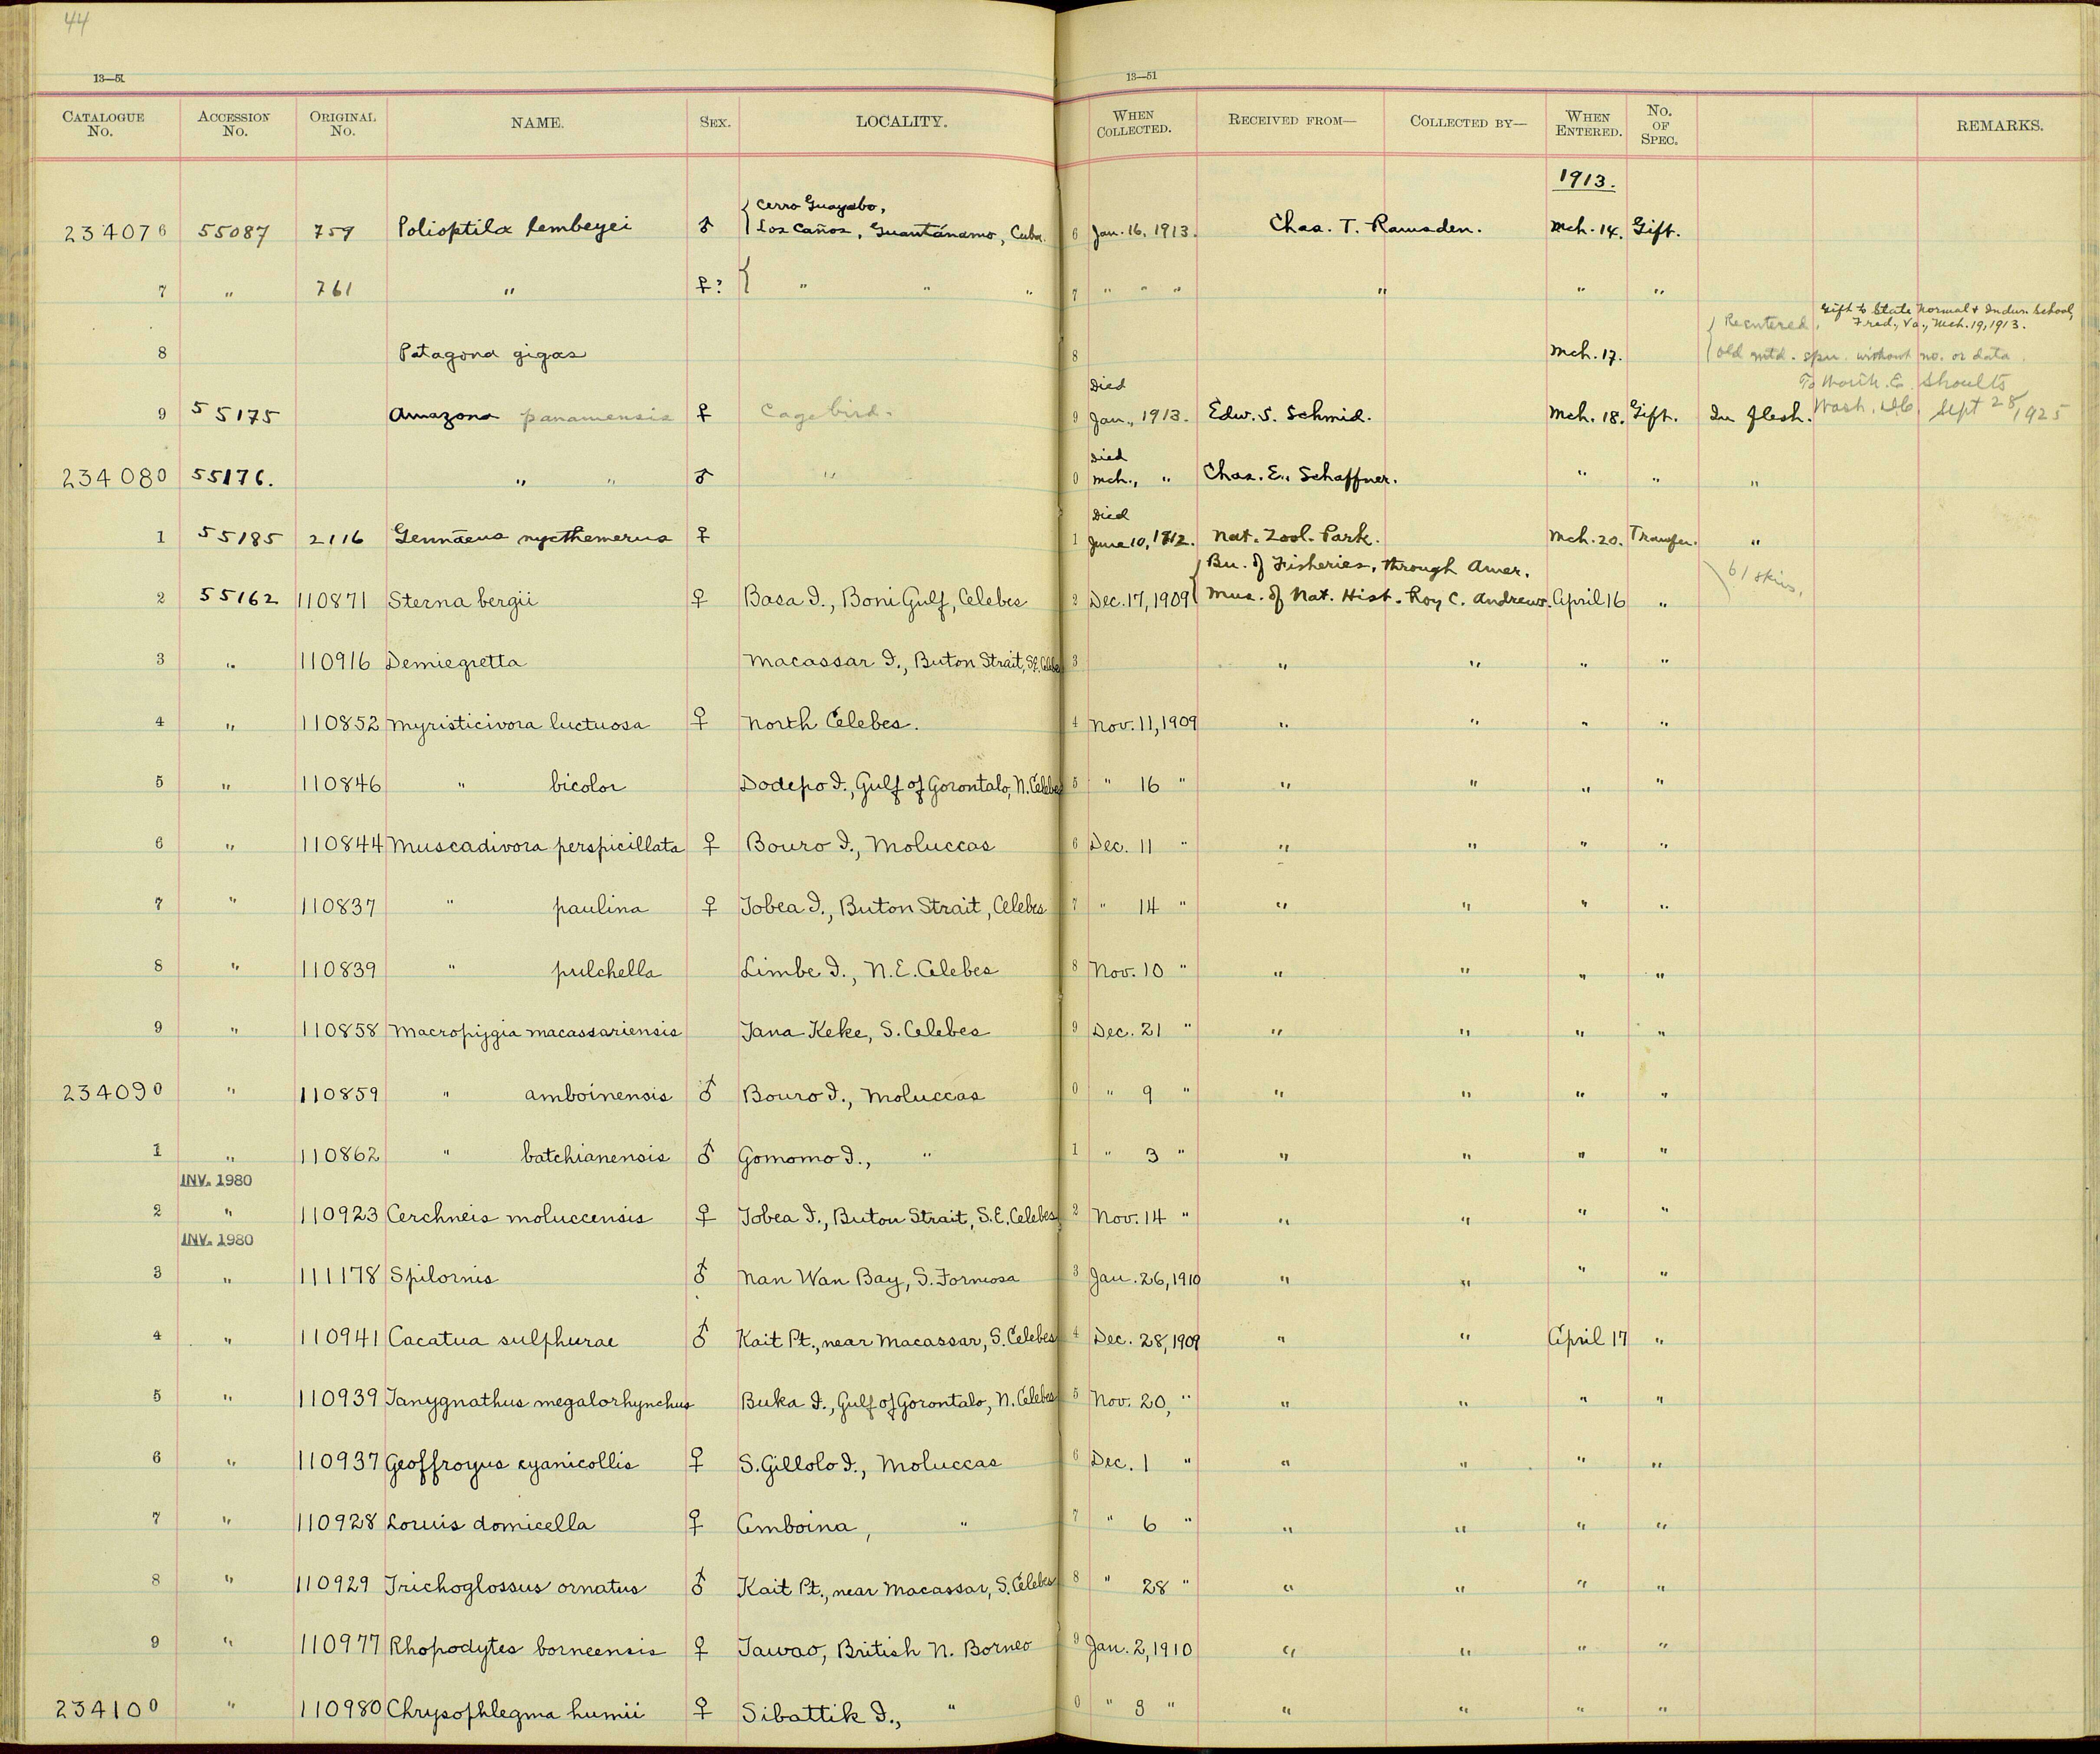 44
13—51 13—51
CATALOGUE No. ACCESSION No. ORIGINAL No. NAME. SEX. LOCALITY. WHEN COLLECTED. RECEIVED FROM— COLLECTED BY— WHEN ENTERED. No. OF SPEC. REMARKS.
1913.
Cerro Guayabo,
234076 55087 759 Polioptila lembeyei ♂ Los Caños, Guantánamo, Cuba. 6 Jan. 16, 1913. Chas. T. Ramsden. Mch. 14. Gift.
7 " 761 " ♀? " " " 7 " " " " " "
Gift to State Normal & Indus. School,
Reentered. Fred., Va., Mch. 19, 1913.
8 Patagona gigas 8 Mch. 17. Old mtd. spec. without no. or data.
Died To E. Shoults
9 55175 Amazona panamensis ♀ Cage bird. 9 Jan., 1913. Edw. S. Schmid. Mch. 18. Gift. In flesh. Wash. D.C. Sept 28, 1925
Died
234080 55176. " " ♂ " 0 Mch., " Chas. E. Schaffner. " " "
Died
1 55185 2116 Gennæus nycthemerus ♀ 1 June 10, 1912. Nat. Zool. Park. Mch. 20. Transfer. "
Bu. of Fisheries, through Amer. 61 skins.
2 55162 110871 Sterna bergii ♀ Basa I., Boni Gulf, Celebes 2 Dec. 17, 1909 Mus. of Nat. Hist. Roy C. Andrews. April 16 "
3 " 110916 Demiegretta Macassar I., Buton Strait, S.E. Celebes 3 " " " "
4 " 110852 Myristicivora luctuosa ♀ North Celebes. 4 Nov. 11, 1909 " " " "
5 " 110846 " bicolor Dodepo I., Gulf of Gorontalo, N. Celebes 5 " 16 " " " " "
6 " 110844 Muscadivora perspicillata ♀ Bouro I., Moluccas 6 Dec. 11 " " " " "
7 " 110837 " paulina ♀ Tobea I., Buton Strait, Celebes 7 " 14 " " " " "
8 " 110839 " pulchella Limbe I., N.E. Celebes 8 Nov. 10 " " " " "
9 " 110858 Macropygia macassariensis Tana Keke, S. Celebes 9 Dec. 21 " " " " "
234090 " 110859 " amboinensis ♂ Bouro I., Moluccas 0 " 9 " " " " "
1 " 110862 " batchianensis ♂ Gomomo I., " 1 " 3 " " " " "
INV. 1980
2 " 110923 Cerchneis moluccensis ♀ Tobea I., Buton Strait, S.E. Celebes 2 Nov. 14 " " " " "
INV. 1980
3 " 111178 Spilornis ♂ Nan Wan Bay, S. Formosa 3 Jan. 26, 1910 " " " "
4 " 110941 Cacatua sulphurae ♂ Kait Pt., near Macassar, S. Celebes 4 Dec. 28, 1909 " " April 17 "
5 " 110939 Tanygnathus megalorhynchus Buka I., Gulf of Gorontalo, N. Celebes 5 Nov. 20, " " " " "
6 " 110937 Geoffroyus cyanicollis ♀ S. Gillolo I., Moluccas 6 Dec. 1 " " " " "
7 " 110928 Lorius domicella ♀ Amboina, " 7 " 6 " " " " "
8 " 110929 Trichoglossus ornatus ♂ Kait Pt., near Macassar, S. Celebes 8 " 28 " " " " "
9 " 110977 Rhopodytes borneensis ♀ Tawao, British N. Borneo 9 Jan. 2, 1910 " " " "
234100 " 110980 Chrysophlegma humii ♀ Sibattik I., " 0 " 3 " " " " "